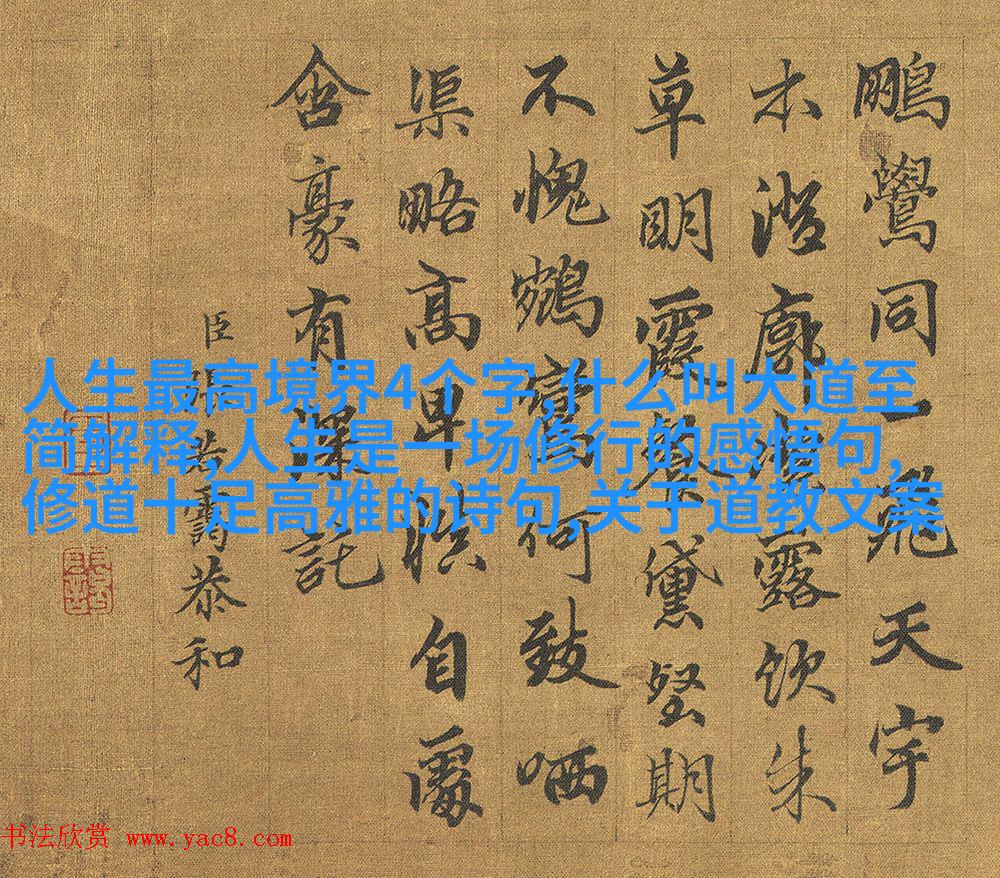 鵬鷽同一飛天宇
木澄廓露飲朱
草明霞黛堅期
不愧鶴何致哂
渠略高卑自
含豪有深託
臣若靄恭和
人生最高境界4个字,什么叫大道至
简解释,人生是一场修行的感悟句,
修道十足高雅的诗句,关于道教文案
书法欣赏 www.yac8.com